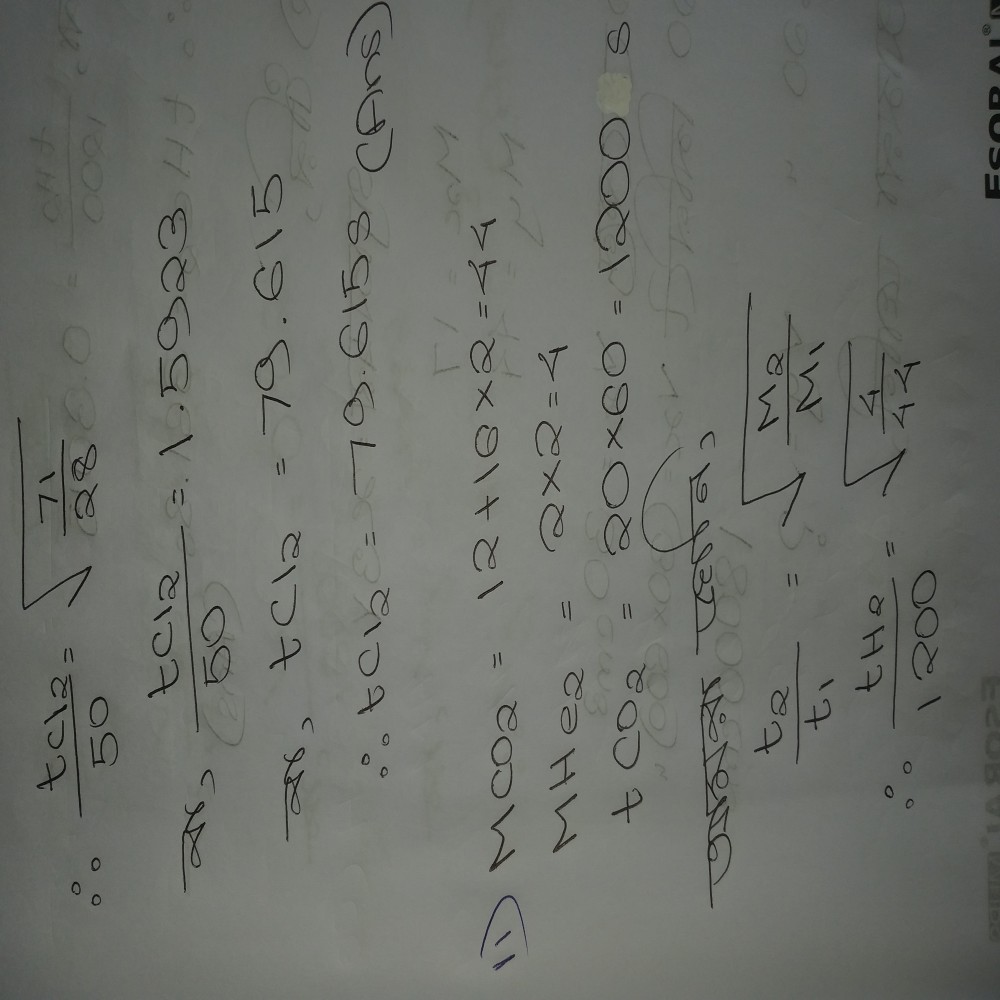 ∴ tCl2/50 = √71/28
বা, tCl2/50 = 1.5923
বা, tCl2 = 79.615
∴ tCl2 = 79.615s (Ans)
11) MCO2 = 12+16×2=44
MHe2 = 2×2=4
tCO2 = 20×60=1200 s
আমরা জানি,
t2/t1 = √M2/M1
∴ tH2/1200 = √4/44
ESCORAL